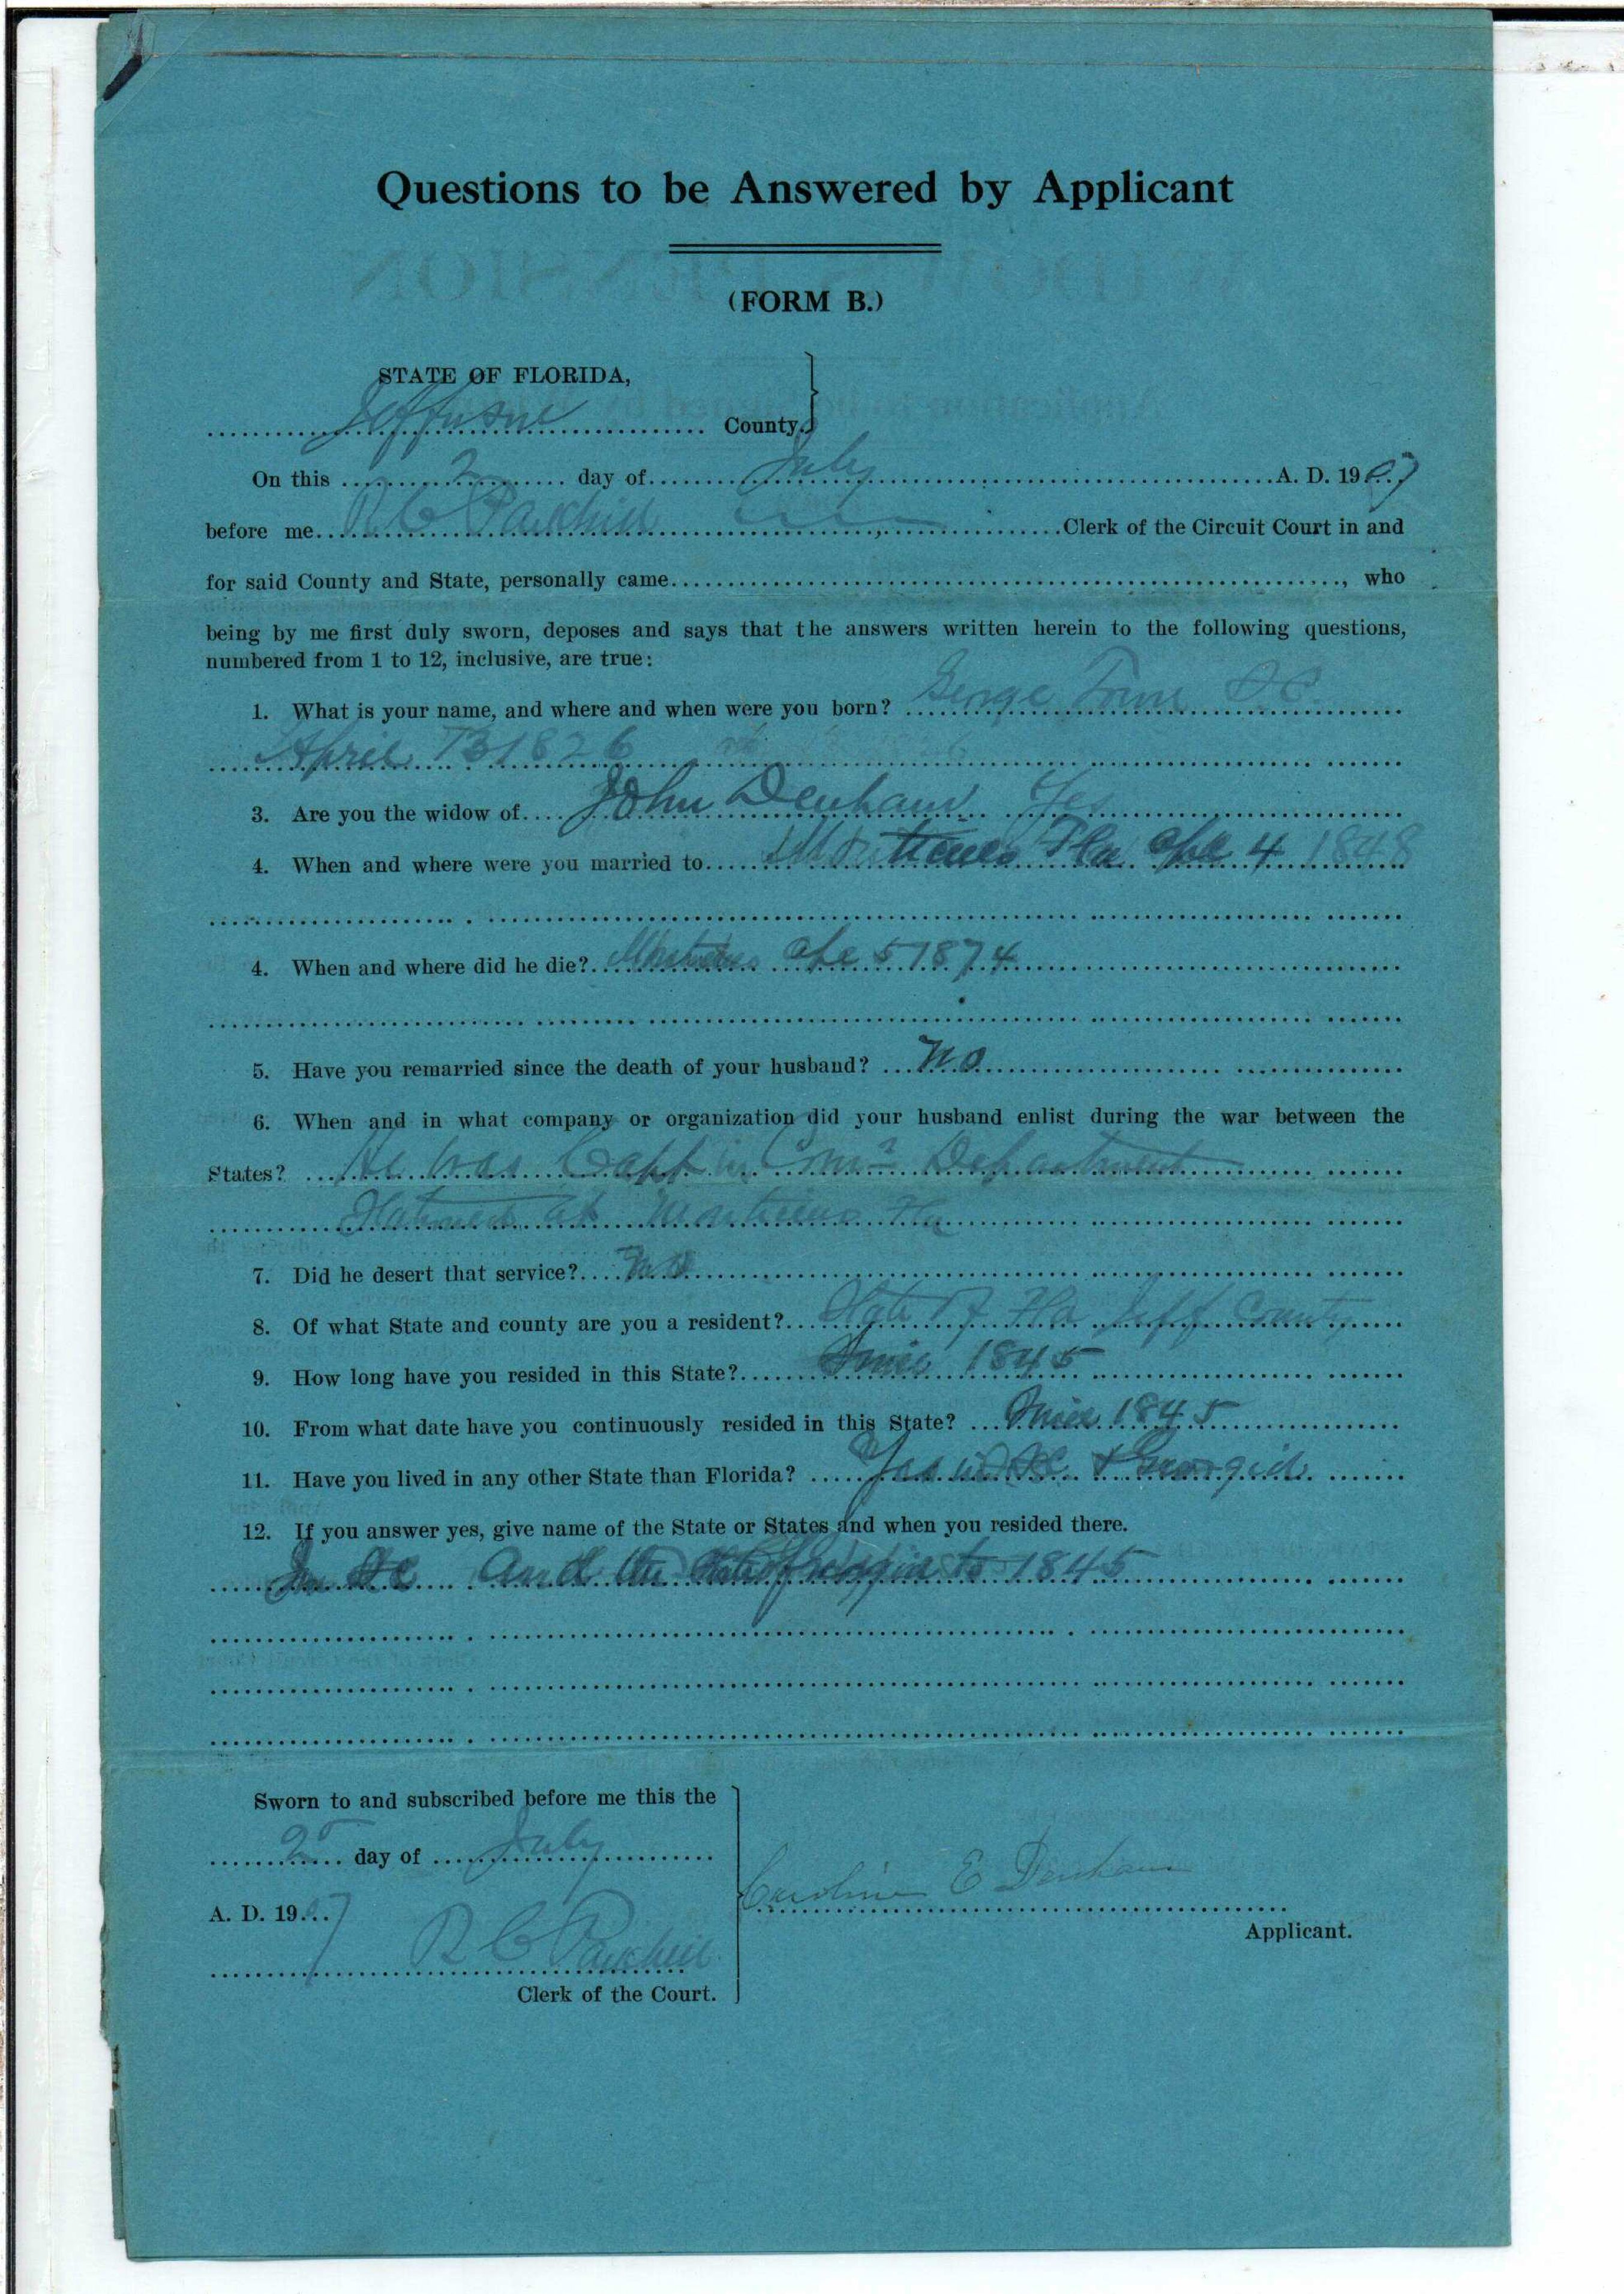 Questions to be Answered by Applicant
(FORM B.)
STATE OF FLORIDA,
Jefferson County.
On this 2 day of July A. D. 1907
before me R C Parkhill Clerk of the Circuit Court in and
for said County and State, personally came , who
being by me first duly sworn, deposes and says that the answers written herein to the following questions,
numbered from 1 to 12, inclusive, are true:
1. What is your name, and where and when were you born? George Town S.C.
April 13 1826
3. Are you the widow of John Denham Yes
4. When and where were you married to Monticello Fla Apl 4 1848
4. When and where did he die? Monticello Apl 5 1874
5. Have you remarried since the death of your husband? No
6. When and in what company or organization did your husband enlist during the war between the
States? He was Capt in Department
Stationed at Monticello Fla
7. Did he desert that service? No
8. Of what State and county are you a resident? State of Fla Jeff County
9. How long have you resided in this State? Since 1845
10. From what date have you continuously resided in this State? Since 1845
11. Have you lived in any other State than Florida? Yes in SC & Georgia
12. If you answer yes, give name of the State or States and when you resided there.
In SC and in to 1845
Sworn to and subscribed before me this the
2 day of July
A. D. 1907
R C Parkhill
Clerk of the Court.
Caroline E Denham
Applicant.